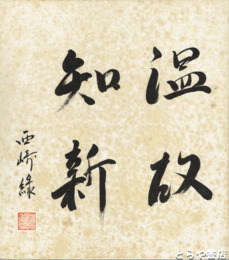 温故
知新
西崎緑
とうや書店